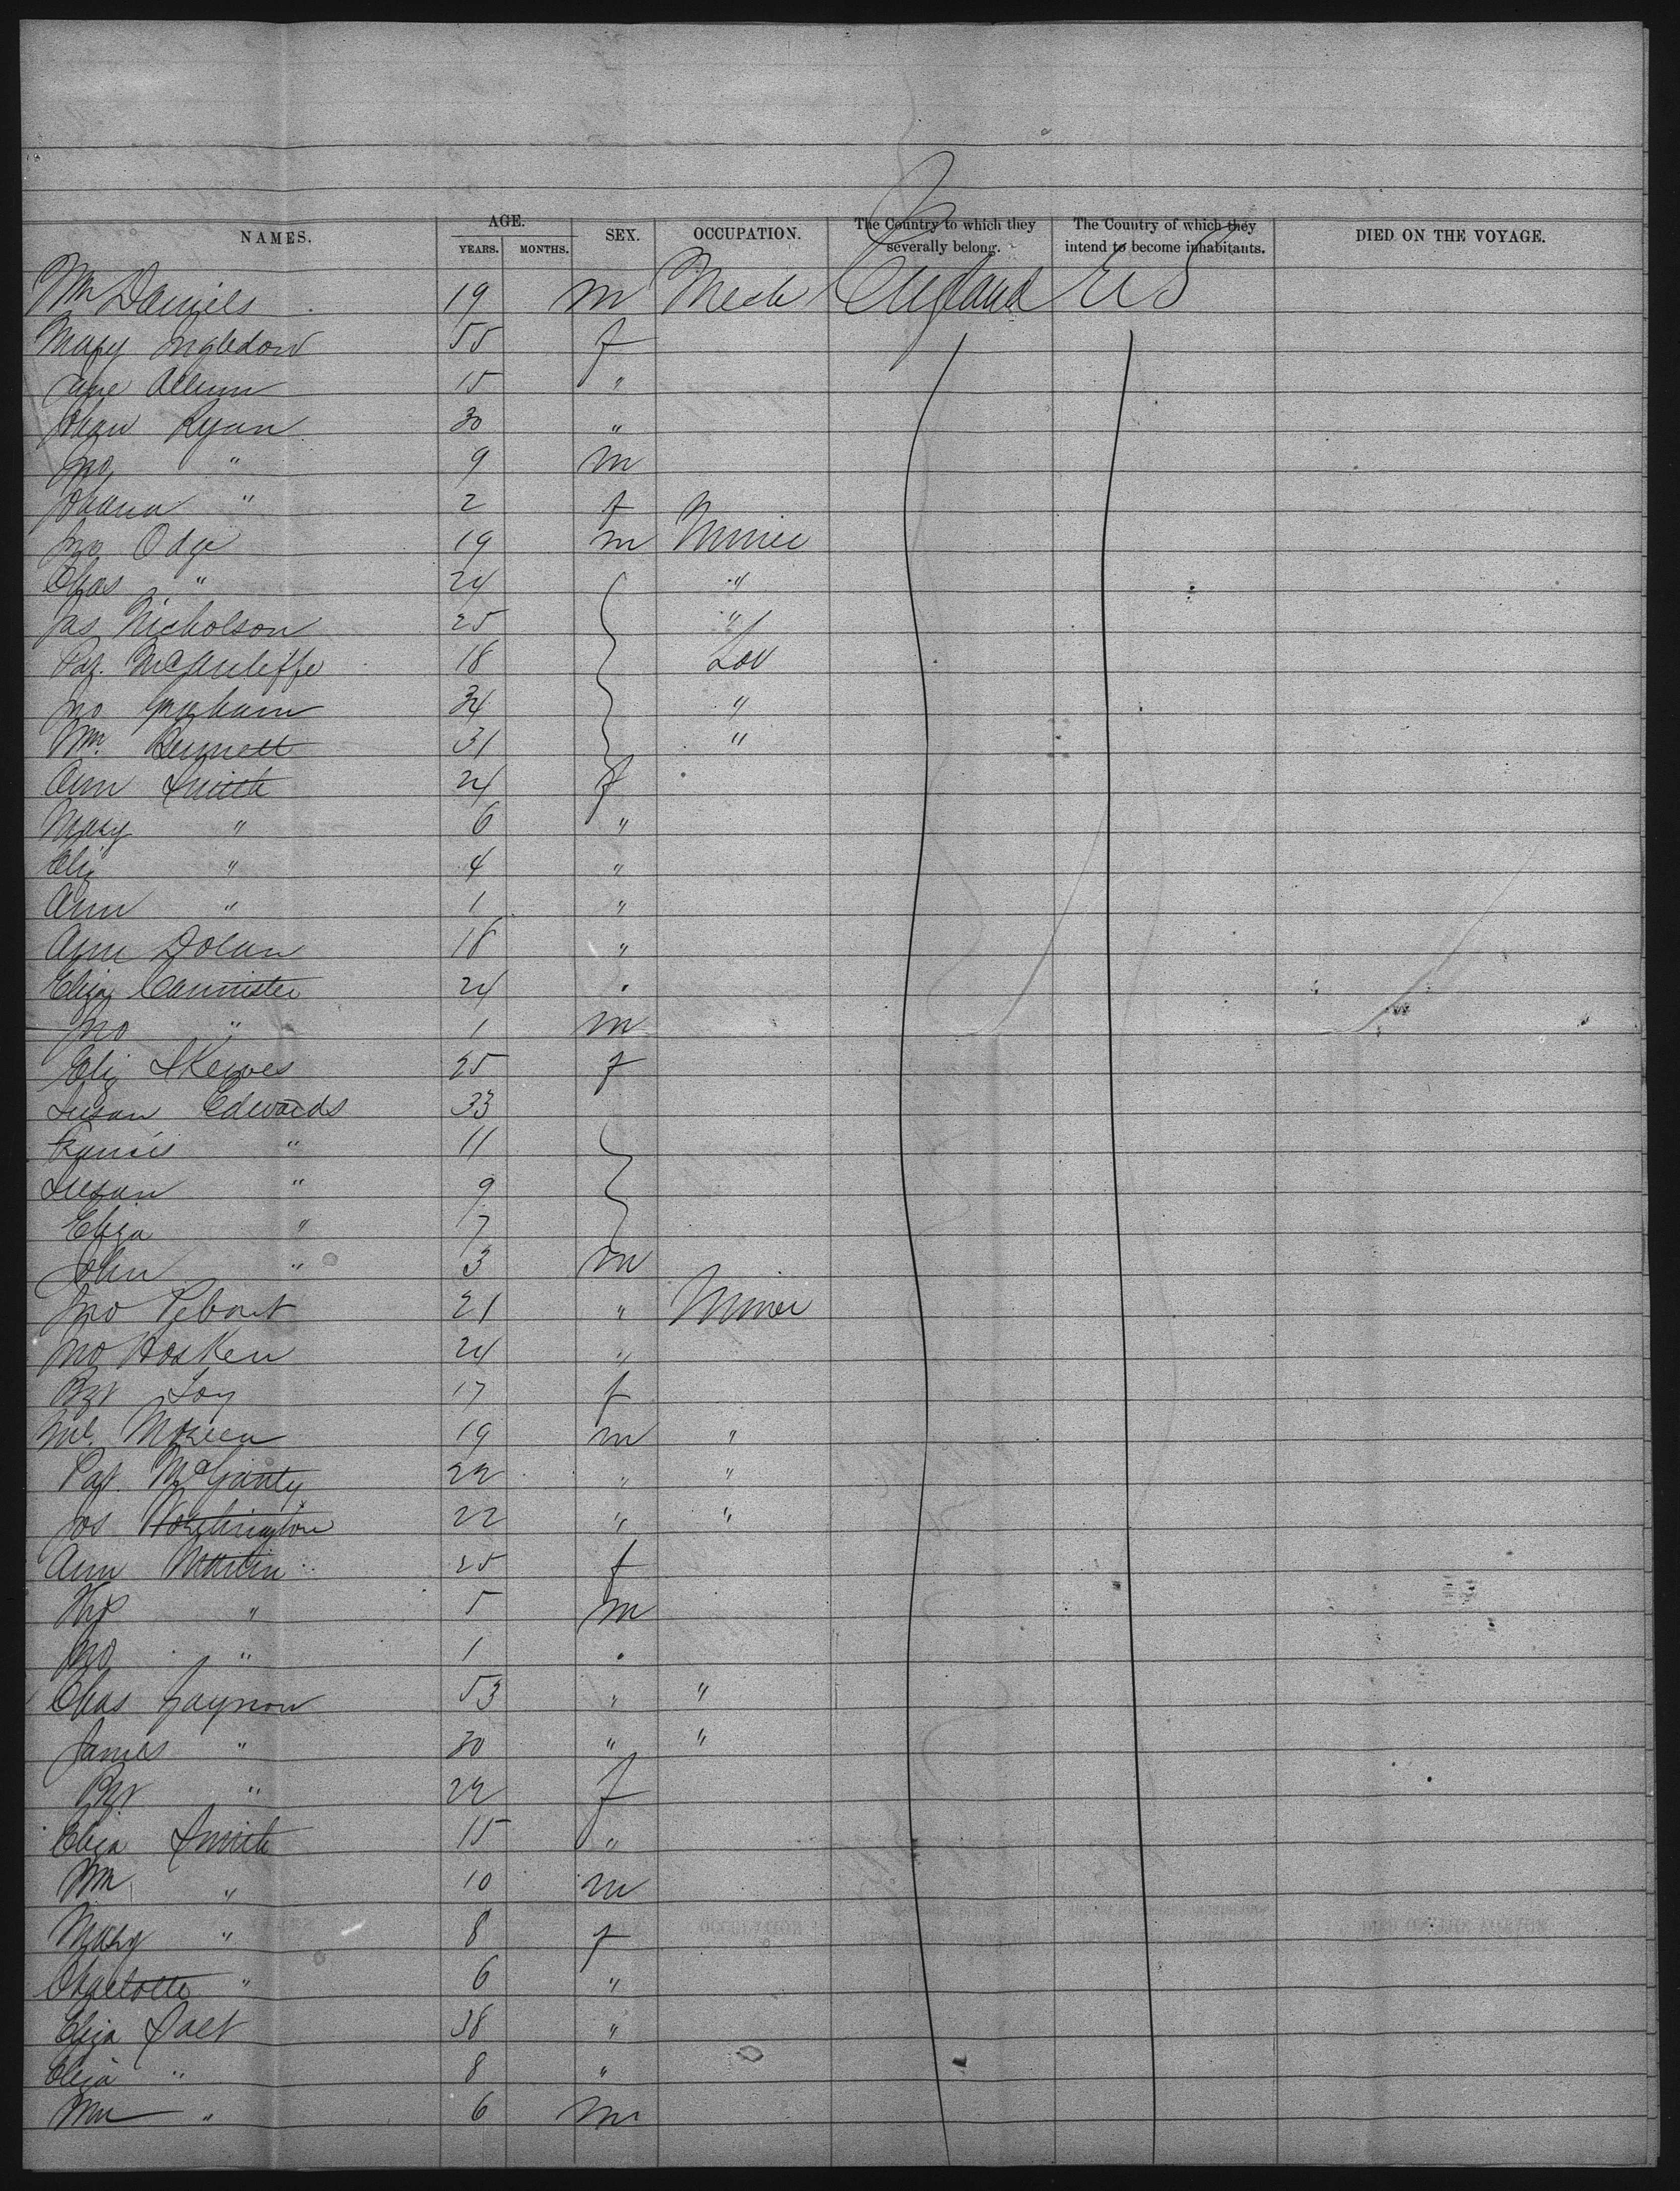 NAMES. AGE. YEARS. MONTHS. SEX. OCCUPATION. The Country to which they severally belong. The Country of which they intend to become inhabitants. DIED ON THE VOYAGE.
Wm Daniels 19 m Mech England U S
Mary Ingledow 55 f
Jane Allum 15 "
Johan Ryan 30 "
Jno " 9 m
Johana " 2 f
Jno Odge 19 m Miner
Chas " 24 "
Jas Nicholson 25 "
Pat. McAuliffe 18 Lab
Jno Graham 34 "
Wm. Bennett 31 "
Ann Smith 24 f
Mary " 6 "
Eliz " 4 "
Ann " 1 "
Ann Dolan 18 "
Eliza Cannister 24 "
Jno " 1 m
Eliz Skewes 25 f
Susan Edwards 33
Francis " 11
Susan " 9
Eliza " 7
John " 3 m
Jno 21 " Miner
Jno Hosken 24 "
Bgt Foy 17 f
19 m "
Pat. McGinty 22 " "
Jos Worthington 22 " "
Ann Martin 25 f
" 5 m
Jno " 1 "
Chas 53 " "
James " 30 " "
Bgt " 22 f
Eliza Smith 15 "
Wm " 10 m
Mary " 8 f
Charlotte " 6 "
Eliza Salt 38 "
Eliza " 8 "
Wm " 6 m